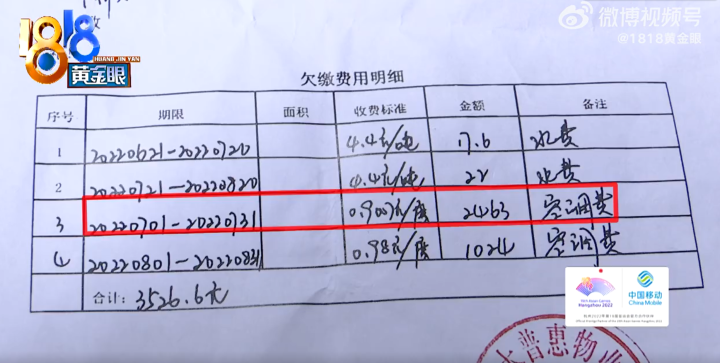 微博视频号
@1818黄金眼
1818
HUANG JIN YAN
黄金眼
欠缴费用明细
序号 期限 面积 收费标准 金额 备注
1 20220621-20220720 4.4元/吨 17.6 水费
2 20220721-20220820 4.4元/吨 22 水费
3 20220701-20220731 元/度 2463 空调费
4 20220801-20220831 0.98元/度 1024 空调费
合计：3526.6元
19th Asian Games
Hangzhou 2022
中国移动
China Mobile
普惠物业